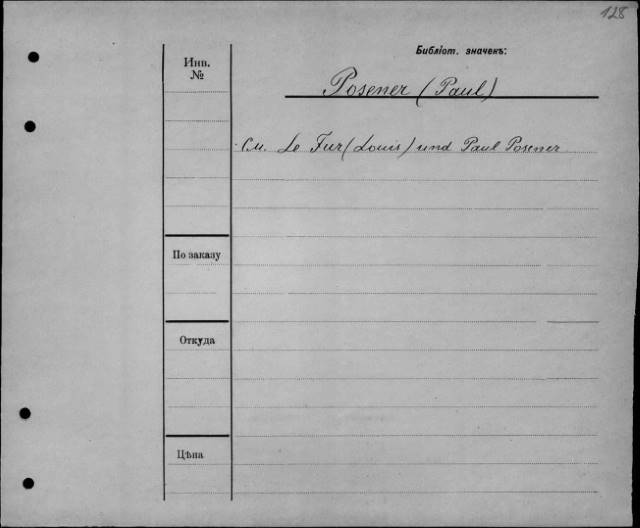 128
Библіот. значекъ:
Инв.
№
Posener (Paul)
См. Le Fur (Louis) und Paul Posener
По заказу
Откуда
Цѣна